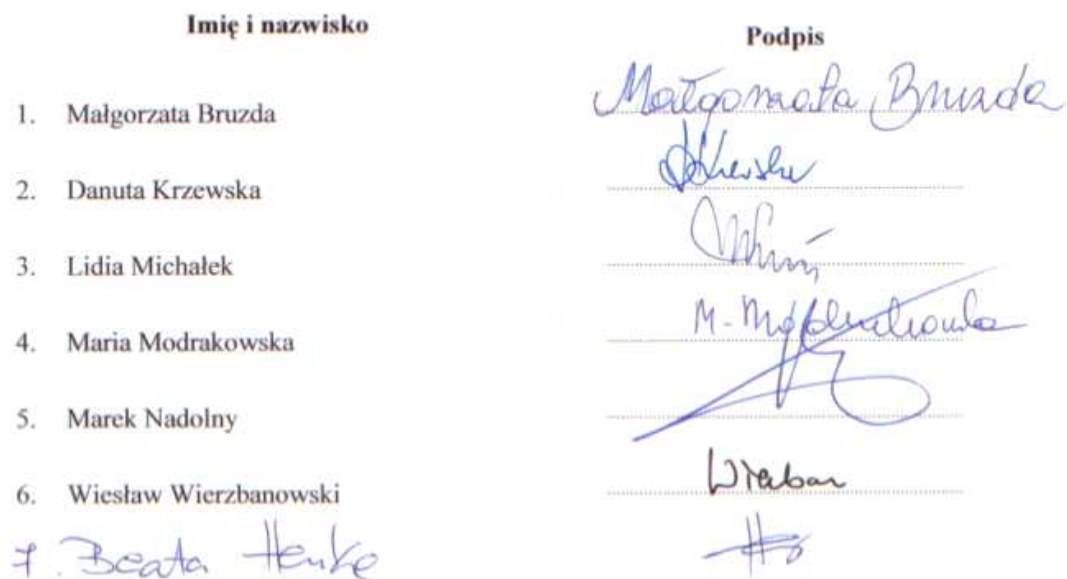 Imię i nazwisko
Podpis
1. Małgorzata Bruzda Małgorzata Bruzda
2. Danuta Krzewska
3. Lidia Michałek
4. Maria Modrakowska M. Modrakowska
5. Marek Nadolny
6. Wiesław Wierzbanowski
7. Beata Henke